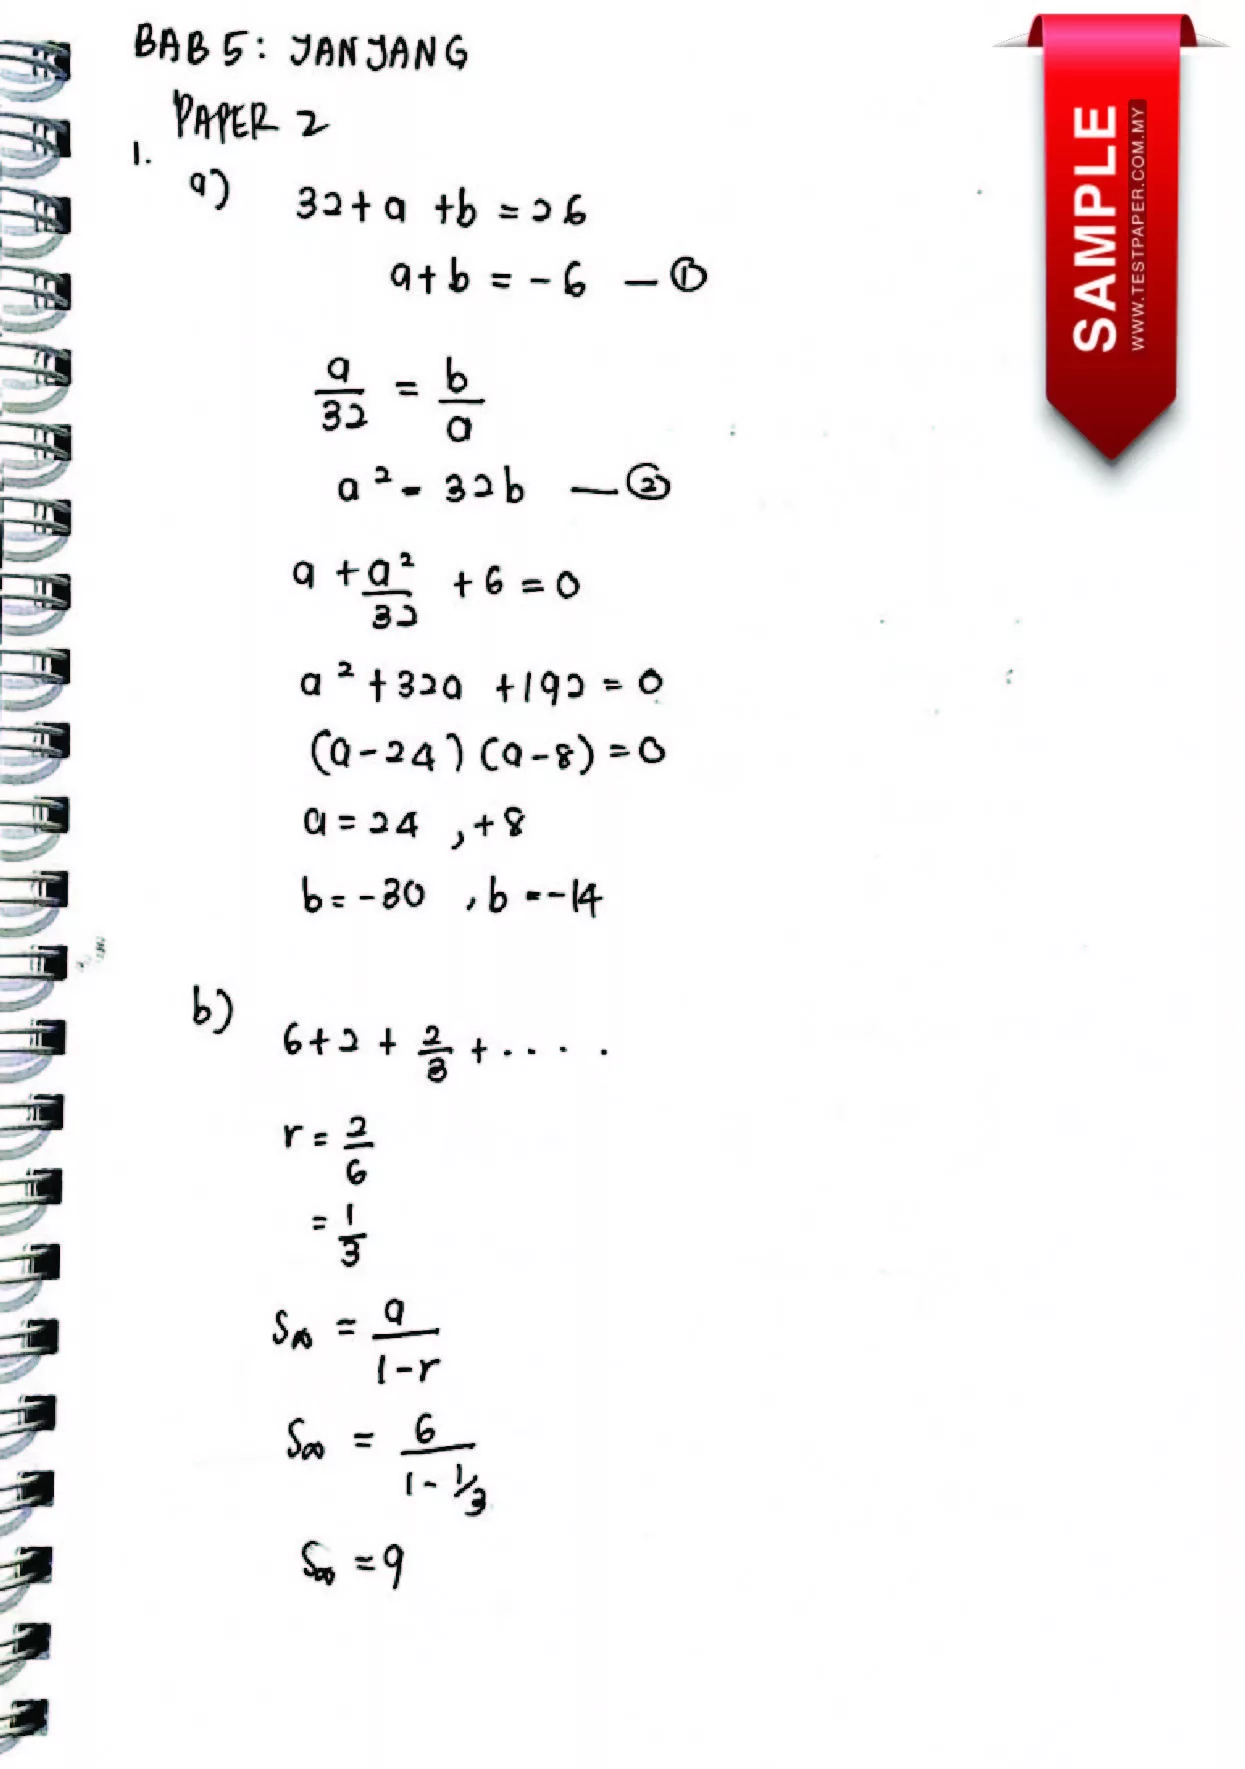 BAB 5: JANJANG
PAPER 2
1.
a) 32 + a + b = 26
a + b = -6 — ①
a/32 = b/a
a² = 32b — ②
a + a²/32 + 6 = 0
a² + 32a + 192 = 0
(a - 24) (a - 8) = 0
a = 24 , +8
b = -30 , b = -14
b) 6 + 2 + 2/3 + . . . .
r = 2/6
= 1/3
S∞ = a/1-r
S∞ = 6/1 - 1/3
S∞ = 9
SAMPLE
WWW.TESTPAPER.COM.MY